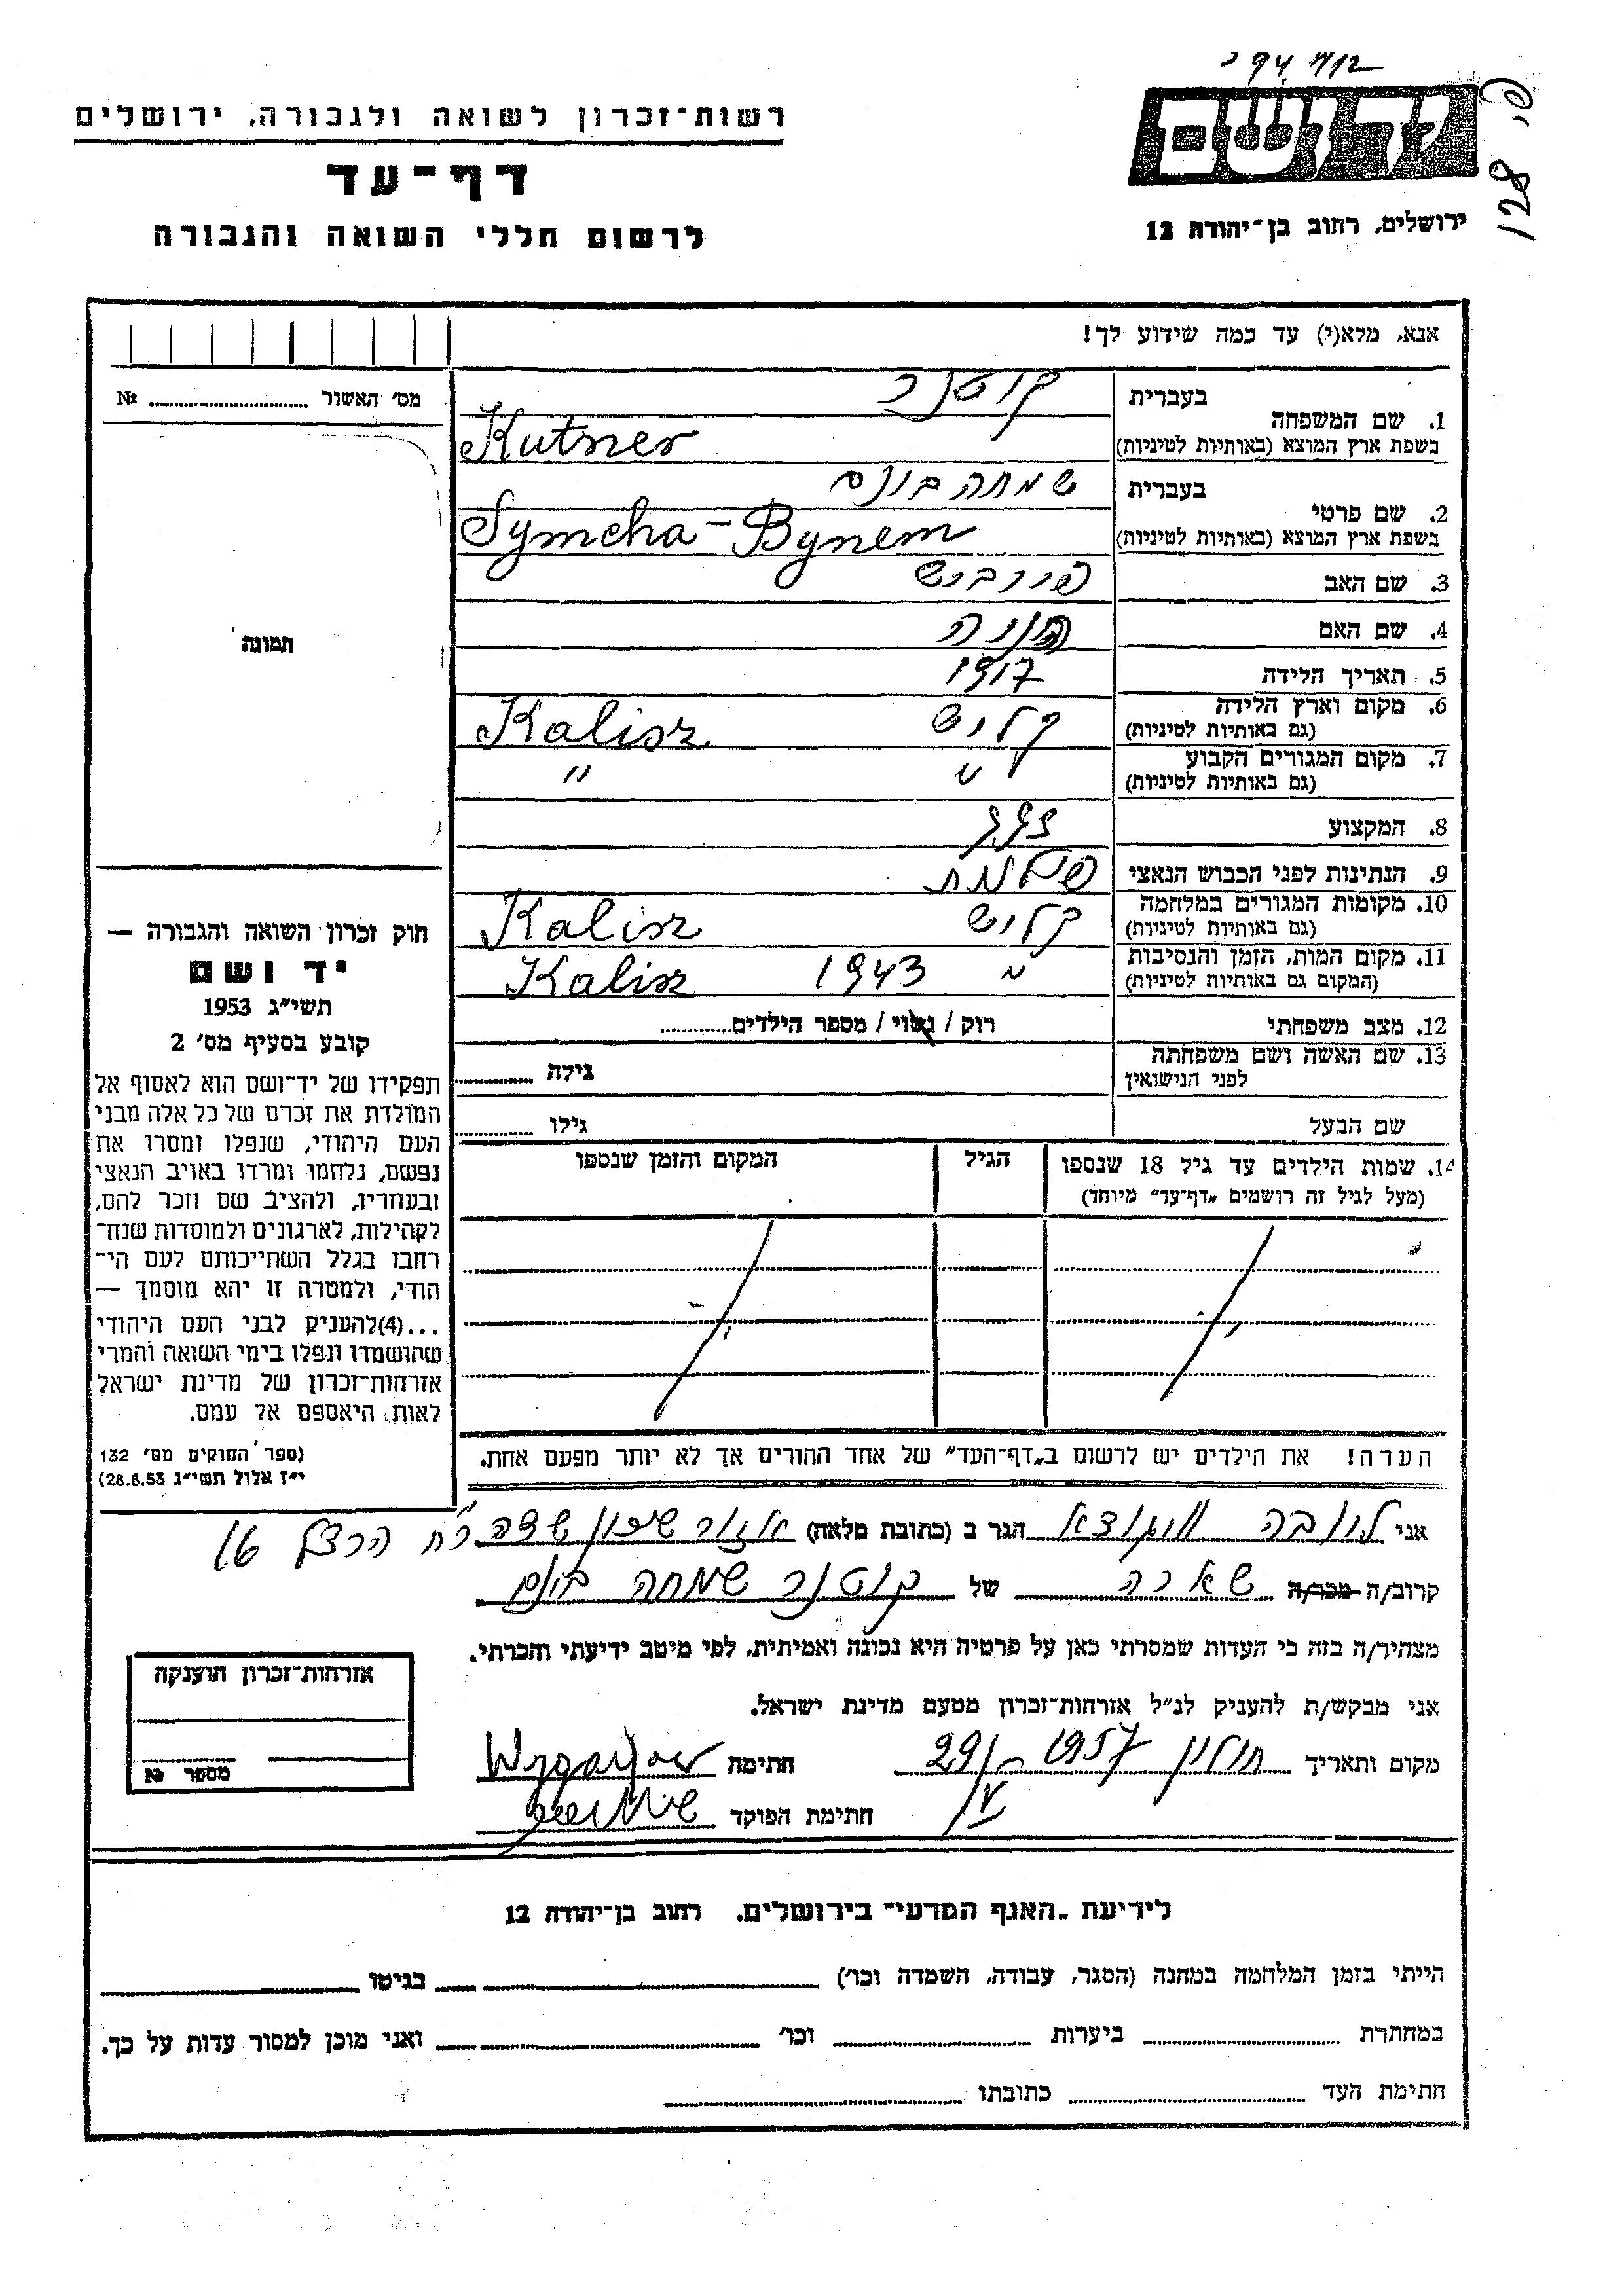 רשות־זכרון לשואה ולגבורה, ירושלים
דף־עד
לרשום חללי השואה והגבורה
יד ושם
ירושלים, רחוב בן־יהודה 12
128
אנא, מלא(י) עד כמה שידוע לך!
מס׳ האשור ........ №
תמונה
1. שם המשפחה
בעברית קוטנר
בשפת ארץ המוצא (באותיות לטיניות) Kutner
2. שם פרטי
בעברית שמחה בונם
בשפת ארץ המוצא (באותיות לטיניות) Symcha-Bynem
3. שם האב פייביש
4. שם האם
5. תאריך הלידה 1917
6. מקום וארץ הלידה קליש Kalisz
(גם באותיות לטיניות)
7. מקום המגורים הקבוע " "
(גם באותיות לטיניות)
8. המקצוע
9. הנתינות לפני הכבוש הנאצי
10. מקומות המגורים במלחמה קליש Kalisz
(גם באותיות לטיניות)
11. מקום המות, הזמן והנסיבות " 1943 Kalisz
(המקום גם באותיות לטיניות)
12. מצב משפחתי רוק / נשוי / מספר הילדים........
13. שם האשה ושם משפחתה
לפני הנישואין גילה ........
שם הבעל גילו ........
14. שמות הילדים עד גיל 18 שנספו הגיל המקום והזמן שנספו
(מעל לגיל זה רושמים „דף־עד" מיוחד)
הערה! את הילדים יש לרשום ב„דף־העד" של אחד ההורים אך לא יותר מפעם אחת.
חוק זכרון השואה והגבורה —
יד ושם
תשי״ג 1953
קובע בסעיף מס׳ 2
תפקידו של יד־ושם הוא לאסוף אל
המולדת את זכרם של כל אלה מבני
העם היהודי, שנפלו ומסרו את
נפשם, נלחמו ומרדו באויב הנאצי
ובעוזריו, ולהציב שם וזכר להם,
לקהילות, לארגונים ולמוסדות שנח־
רבו בגלל השתייכותם לעם הי־
הודי, ולמטרה זו יהא מוסמך —
...(4)להעניק לבני העם היהודי
שהושמדו ונפלו בימי השואה והמרי
אזרחות־זכרון של מדינת ישראל
לאות היאספם אל עמם.
(ספר החוקים מס׳ 132
י״ז אלול תשי״ג 28.8.53)
אני הגר ב (כתובת מלאה) רח הרצל 16
קרוב/ה מכר/ה של קוטנר שמחה בונם
מצהיר/ה בזה כי העדות שמסרתי כאן על פרטיה היא נכונה ואמיתית, לפי מיטב ידיעתי והכרתי.
אני מבקש/ת להעניק לנ״ל אזרחות־זכרון מטעם מדינת ישראל.
מקום ותאריך חולון 29/V - 1957 חתימה
חתימת הפוקד
אזרחות־זכרון הוענקה
מספר №
לידיעת „האגף המדעי" בירושלים, רחוב בן־יהודה 12
הייתי בזמן המלחמה במחנה (הסגר, עבודה, השמדה וכו׳) בגיטו
במחתרת ביערות וכו׳ ואני מוכן למסור עדות על כך.
חתימת העד כתובתו